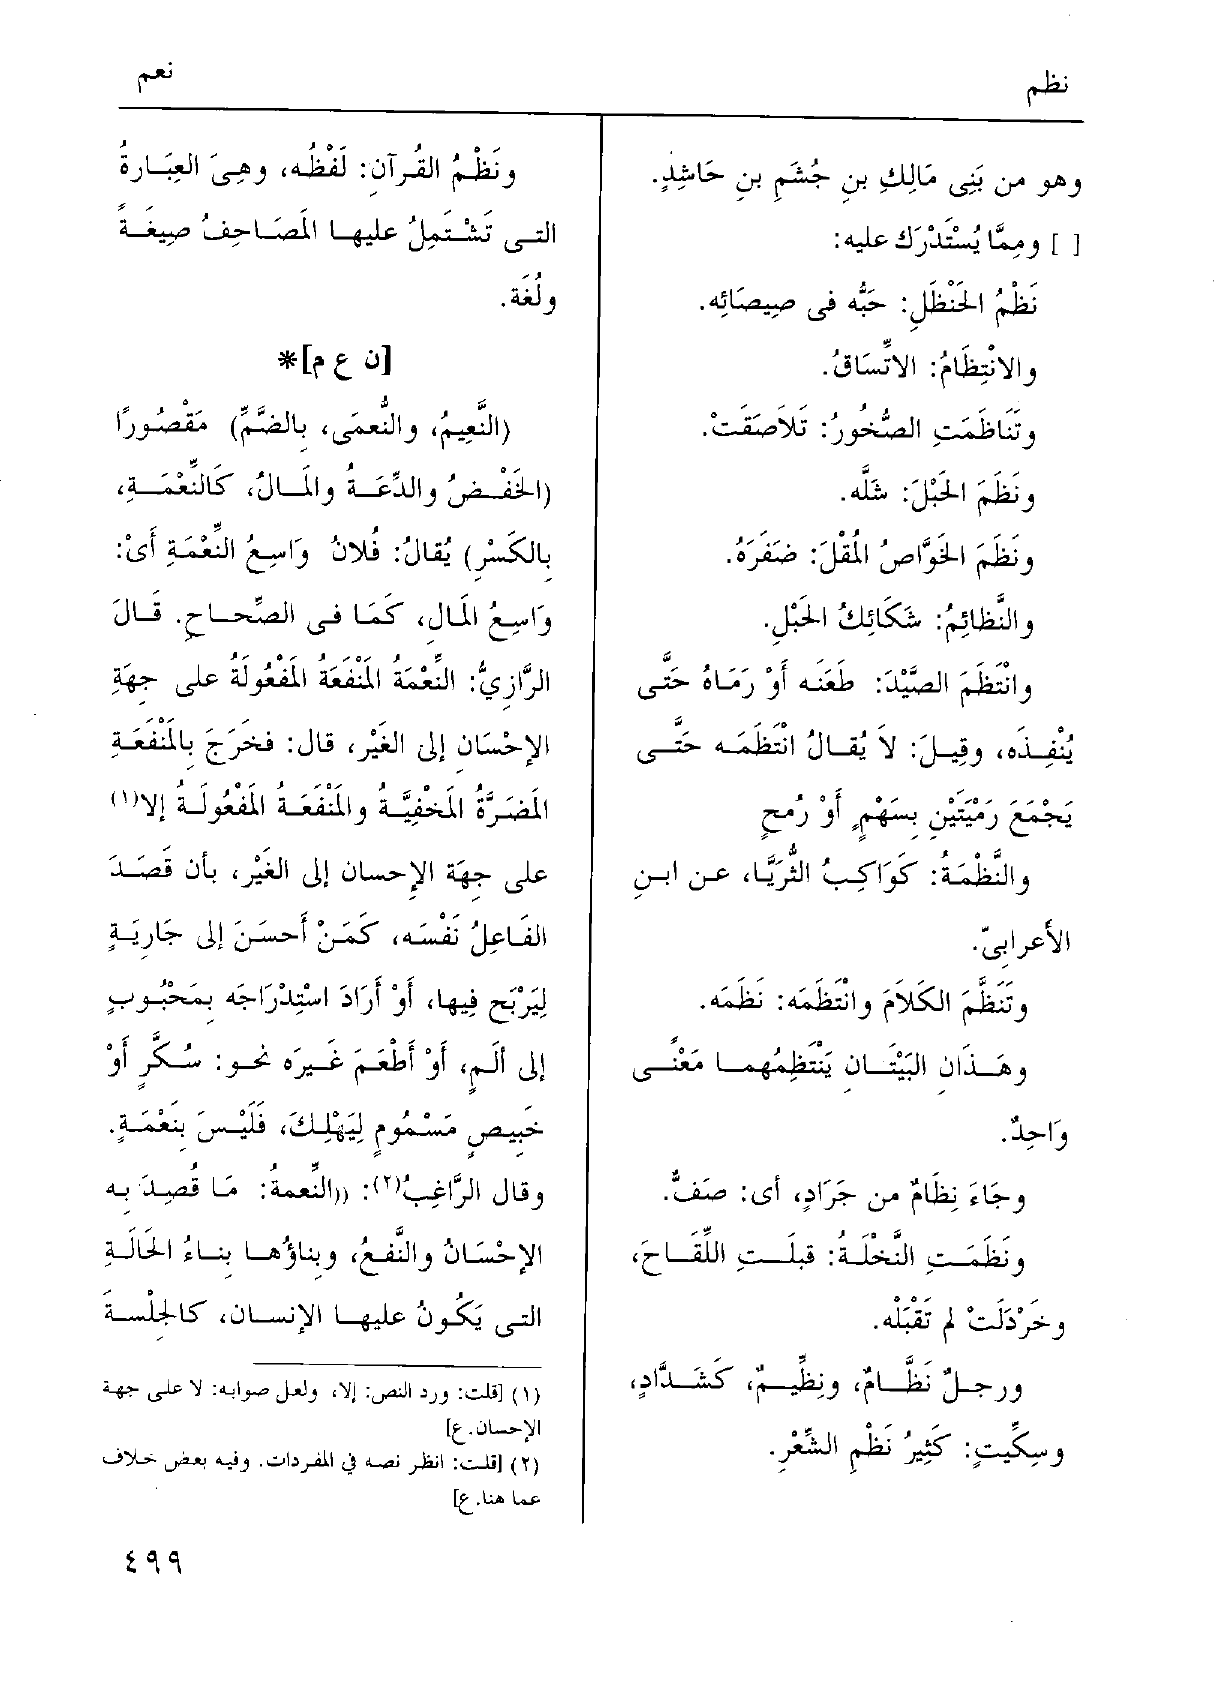 نظم
نعم
وهو من بَنِى مَالِكِ بنِ جُشَمِ بنِ حَاشِدٍ.
[ ] ومِمَّا يُسْتَدْرَك عليه:
نَظْمُ الحَنْظَلِ: حَبُّه فى صِيصَائِه.
والانْتِظَامُ: الاتِّسَاقُ.
وتَنَاظَمَتِ الصُّخُورُ: تَلاَصَقَتْ.
ونَظَمَ الحَبْلَ: شَلَّه.
ونَظَمَ الخَوَّاصُ المُقْلَ: ضَفَرَهُ.
والنَّظائِمُ: شَكَائِكُ الحَبْلِ.
وانْتَظَمَ الصَّيْدَ: طَعَنَه أَوْ رَمَاهُ حَتَّى
يُنْفِذَه، وقِيلَ: لاَ يُقَالُ انْتَظَمَه حَتَّى
يَجْمَعَ رَمْيَتَيْنِ بِسَهْمٍ أَوْ رُمْحٍ
والنَّظْمَةُ: كَوَاكِبُ الثُّرَيَّا، عن ابنِ
الأَعرابِىّ.
وتَنَظَّمَ الكَلاَمَ وانْتَظَمَه: نَظَمَه.
وهَذَانِ البَيْتَانِ يَنْتَظِمُهما مَعْنًى
وَاحِدٌ.
وجَاءَ نِظَامٌ من جَرَادٍ، أى: صَفٌّ.
ونَظَّمَتِ النَّخْلَةُ: قَبِلَتِ اللِّقَاحَ،
وخَرْدَلَتْ لم تَقْبَلْه.
ورجلٌ نَظَّامٌ، ونِظِّيمٌ، كَشَدَّادٍ،
وسِكِّيتٍ: كَثِيرُ نَظْمِ الشِّعْرِ.
ونَظْمُ القُرآنِ: لَفْظُه، وهِىَ العِبَارةُ
التى تَشْتَمِلُ عليها المَصَاحِفُ صِيغَةً
ولُغَة.
[ن ع م]*
(النَّعِيمُ، والنُّعمَى، بِالضَّمِّ) مَقْصُورًا
(الخَفْضُ والدَّعَةُ والمَالُ، كَالنِّعْمَةِ،
بِالكَسْرِ) يُقَالُ: فُلانٌ وَاسِعُ النِّعْمَةِ أىْ:
وَاسِعُ المَالِ، كَمَا فى الصِّحاحِ. قَالَ
الرَّازِيُّ: النِّعْمَةُ المَنْفَعَةُ المَفْعُولَةُ على جِهَةِ
الإحْسَانِ إلى الغَيْرِ، قال: فخَرَجَ بِالمَنْفَعَةِ
المَضَرَّةُ المَخْفِيَّةُ والمَنْفَعَةُ المَفْعُولَةُ إلا(١)
على جِهَةِ الإحسانِ إلى الغَيْرِ، بأن قَصَدَ
الفَاعِلُ نَفْسَه، كَمَنْ أَحسَنَ إلى جَارِيَةٍ
لِيَرْبَح فِيها، أَوْ أَرَادَ اسْتِدْرَاجَه بِمَحْبُوبٍ
إلى أَلَمٍ، أَوْ أَطْعَمَ غَيرَه نحو: سُكَّرٍ أَوْ
خَبِيصٍ مَسْمُومٍ لِيَهْلِكَ، فَلَيْسَ بِنَعْمَةٍ.
وقال الرَّاغِبُ(٢): ((النِّعمةُ: مَا قُصِدَ به
الإحْسَانُ والنَّفعُ، وبناؤُها بِناءُ الحَالَةِ
التى يَكُونُ عليها الإنسانِ، كالجِلْسةَ
(١) [قلت: ورد النص: إلا، ولعل صوابه: لا على جهة
الإحسان.ع]
(٢) [قلت: انظر نصه في المفردات. وفيه بعض خلاف
عما هنا.ع]
٤٩٩